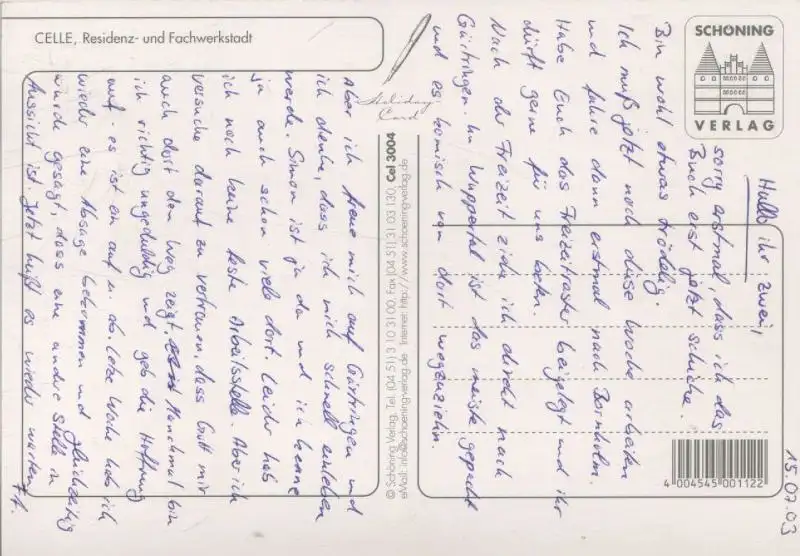 CELLE, Residenz- und Fachwerkstadt
Holiday
Card
SCHÖNING
VERLAG
© Schöning Verlag, Tel. (04 51) 3 10 31 00, Fax (04 51) 31 03 130, Cel 3004
eMail: info@schoening-verlag.de · Internet: http://www.schoening-verlag.de
4 004545 001122
15.07.03
Hallo ihr zwei,
sorry erstmal, dass ich das
Buch erst jetzt schicke.
Bin wohl etwas trödelig
Ich muß jetzt noch diese Woche arbeiten
und fahre dann erstmal nach Bornholm.
Habe Euch das Freizeitraster beigelegt und ihr
dürft gerne für uns beten.
Nach der Freizeit ziehe ich direkt nach
Gärtringen. In Wuppertal ist das meiste gepackt
und es komisch von dort wegzuziehn.
Aber ich freue mich auf Gärtringen und
ich denke, dass ich mich schnell einleben
werde. Simon ist ja da und ich kenne
ja auch schon viele dort. Leider hab
ich noch keine feste Arbeitsstelle. Aber ich
versuche darauf zu vertrauen, dass Gott mir
auch dort den Weg zeigt. Manchmal bin
ich richtig ungeduldig und geb die Hoffnung
auf. es ist ein auf u. ab. Letze Woche hab ich
wieder eine Absage bekommen und gleichzeitig
wurde gesagt, dass eine andre Stelle in
Aussicht ist. Jetzt hußt es wieder warten